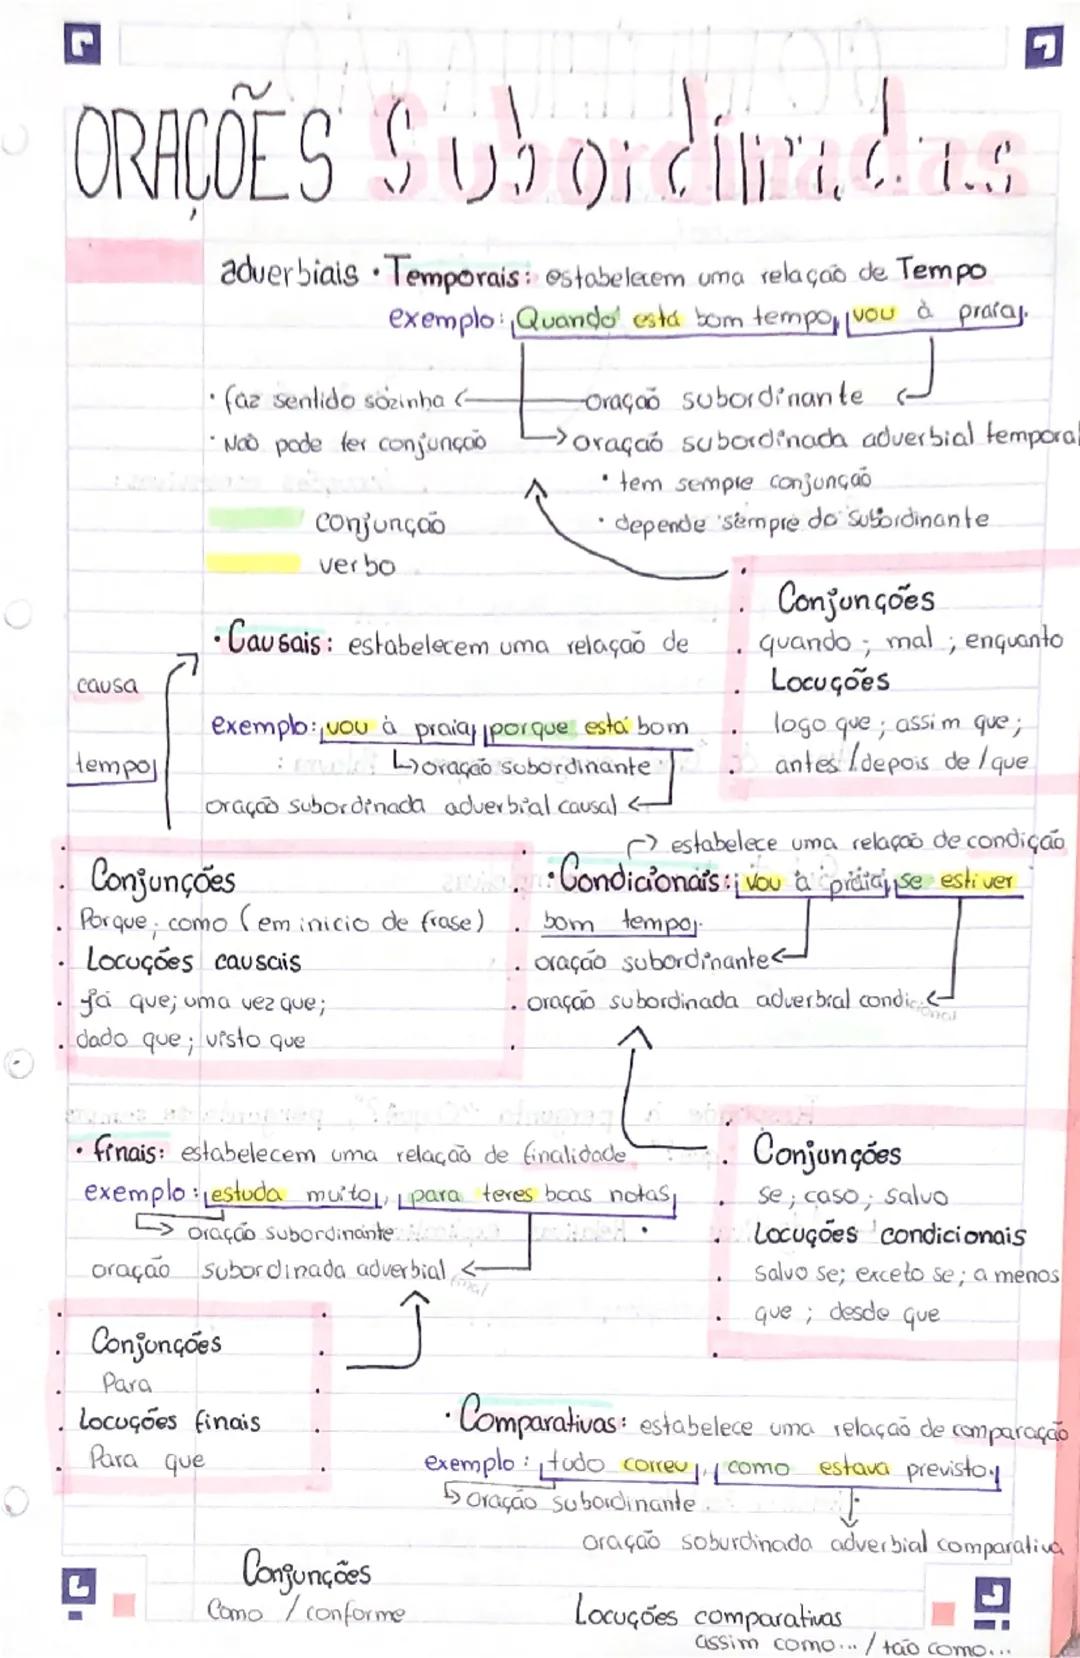 ORAÇÕES Subordinadas
adverbiais · Temporais: estabelecem uma relação de Tempo
exemplo: Quando está bom tempo, vou à praia.
· faz sentido sozinha
oração subordinante
· Não pode ter conjunção
oração subordinada adverbial temporal
· tem sempre conjunção
· depende sempre do subordinante
conjunção
verbo
Conjunções
quando ; mal ; enquanto
Locuções
logo que ; assim que ;
antes / depois de / que
· Causais: estabelecem uma relação de
causa
exemplo: vou à praia, porque está bom
tempo
oração subordinante
oração subordinada adverbial causal
Conjunções
Porque ; como (em inicio de frase)
Locuções causais
já que; uma vez que;
dado que ; visto que
estabelece uma relação de condição
· Condicionais: vou à praia, se estiver
bom tempo.
oração subordinante
oração subordinada adverbial condicional
Conjunções
se ; caso ; salvo
Locuções condicionais
salvo se; exceto se; a menos
que ; desde que
· finais: estabelecem uma relação de finalidade
exemplo: estuda muito, para teres boas notas
oração subordinante
oração subordinada adverbial final
Conjunções
Para
Locuções finais
Para que
· Comparativas: estabelece uma relação de comparação
exemplo: tudo correu, como estava previsto.
oração subordinante
oração soburdinada adverbial comparativa
Conjunções
Como / conforme
Locuções comparativas
assim como... / tão como...